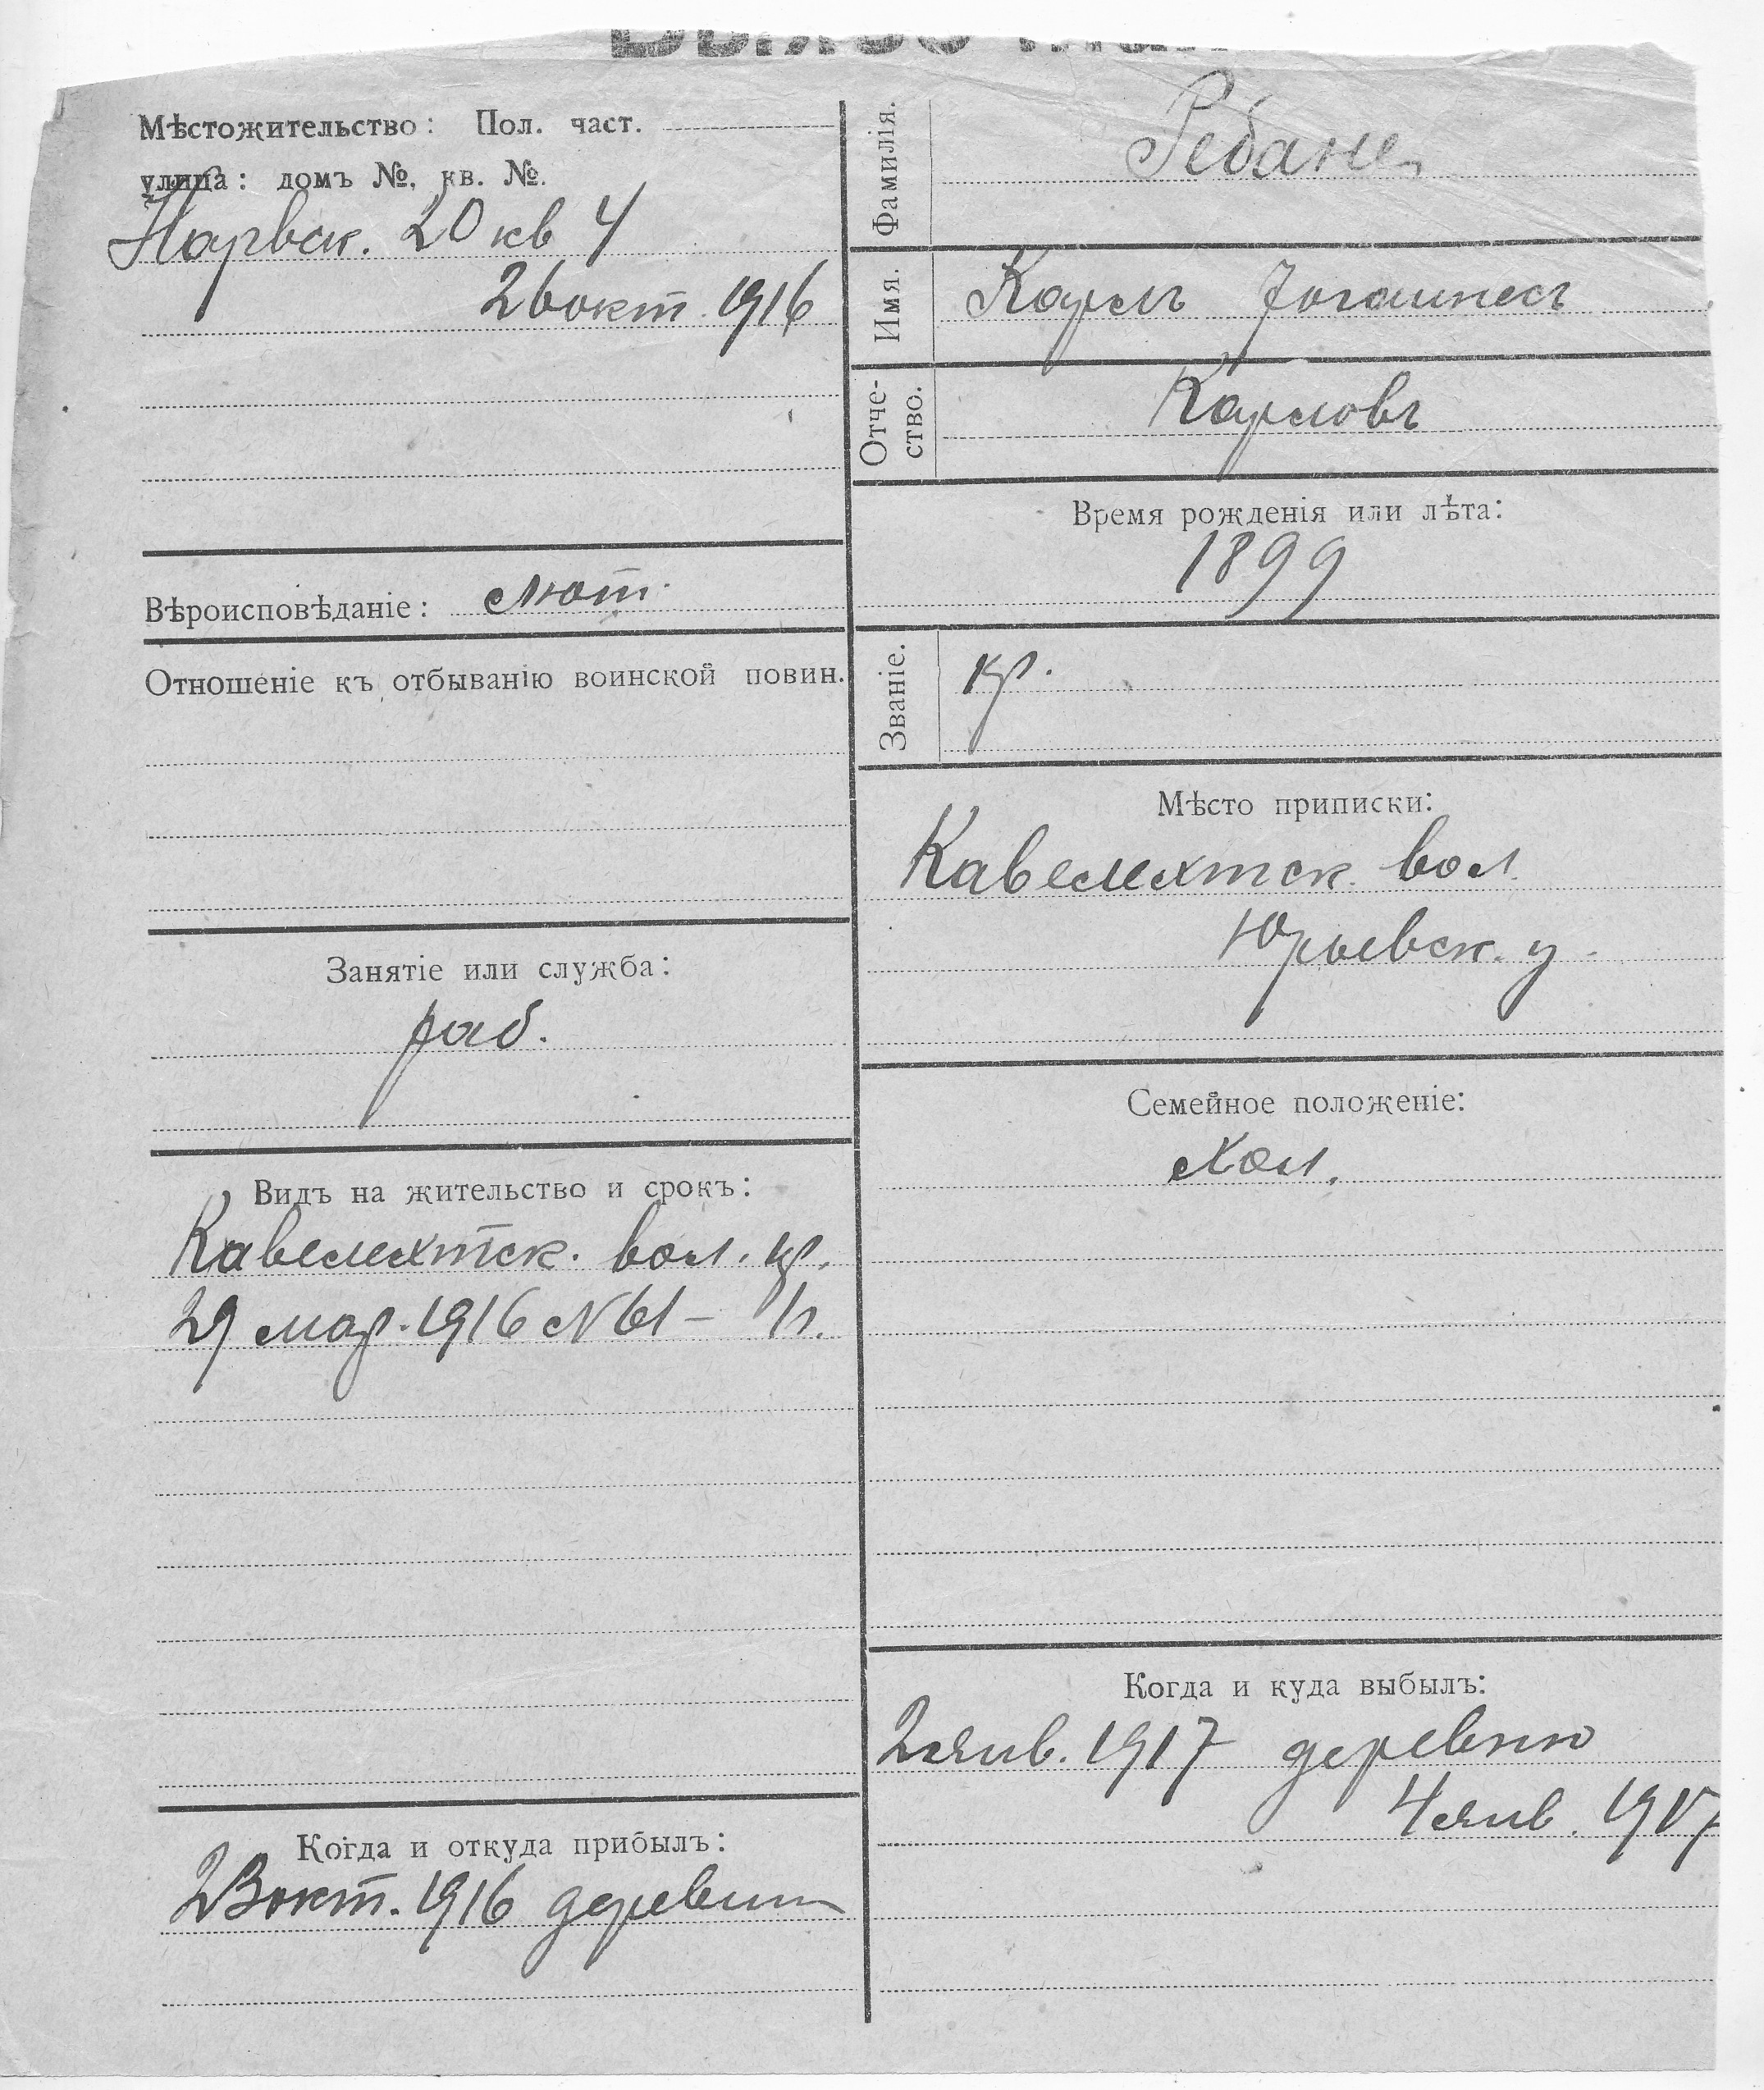 Мѣстожительство: Пол. част.
улица: домъ №. кв. №.
Нарвск. 20 кв 4
26 окт. 1916
Вѣроисповѣданіе: лют.
Отношеніе къ отбыванію воинской повин.
Занятіе или служба:
раб.
Видъ на жительство и срокъ:
Кавелехтск. вол. кр.
29 мар. 1916 № 61 –
Когда и откуда прибылъ:
23 окт. 1916 деревни
Фамилія. Ребане
Имя. Карлъ Іоганнесъ
Отче-
ство. Карловъ
Время рожденія или лѣта:
1899
Званіе. кр.
Мѣсто приписки:
Кавелехтск. вол.
Юрьевск. у.
Семейное положеніе:
хол.
Когда и куда выбылъ:
2 янв. 1917 деревню
4 янв. 1917